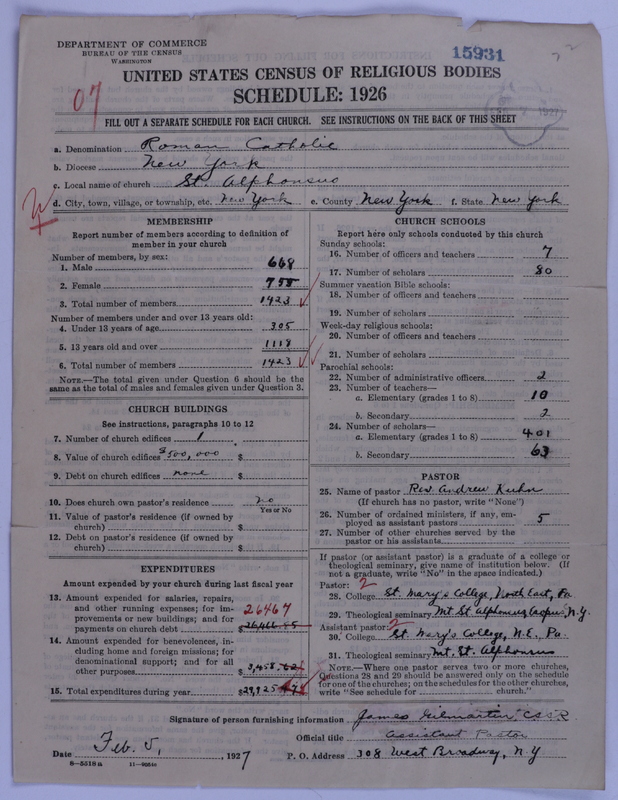 DEPARTMENT OF COMMERCE
BUREAU OF THE CENSUS
WASHINGTON
15931
UNITED STATES CENSUS OF RELIGIOUS BODIES
SCHEDULE: 1926
07
FILL OUT A SEPARATE SCHEDULE FOR EACH CHURCH. SEE INSTRUCTIONS ON THE BACK OF THIS SHEET
a. Denomination Roman Catholic
b. Diocese New York
c. Local name of church St. Alphonsus
d. City, town, village, or township, etc. New York e. County New York f. State New York
MEMBERSHIP
Report number of members according to definition of
member in your church
Number of members, by sex:
1. Male 668
2. Female 755
3. Total number of members 1423
Number of members under and over 13 years old:
4. Under 13 years of age 305
5. 13 years old and over 1118
6. Total number of members 1423
NOTE.—The total given under Question 6 should be
same as the total of males and females given under Question 3.
CHURCH BUILDINGS
See instructions, paragraphs 10 to 12
7. Number of church edifices 1
8. Value of church edifices $500,000 $
9. Debt on church edifices none $
10. Does church own pastor's residence no
Yes or No
11. Value of pastor's residence (if owned by
church) $
12. Debt on pastor's residence (if owned by
church) $
EXPENDITURES
Amount expended by your church during last fiscal year
13. Amount expended for salaries, repairs,
and other running expenses; for im-
provements or new buildings; and for 26467
payments on church debt $26,466.55
14. Amount expended for benevolences, in-
cluding home and foreign missions; for
denominational support; and for all
other purposes $3,458.62
15. Total expenditures during year $29,925
CHURCH SCHOOLS
Report here only schools conducted by this church
Sunday schools:
16. Number of officers and teachers 7
17. Number of scholars 80
Summer vacation Bible schools:
18. Number of officers and teachers
19. Number of scholars
Week-day religious schools:
20. Number of officers and teachers
21. Number of scholars
Parochial schools:
22. Number of administrative officers 2
23. Number of teachers—
a. Elementary (grades 1 to 8) 10
b. Secondary 2
24. Number of scholars—
a. Elementary (grades 1 to 8) 401
b. Secondary 63
PASTOR
25. Name of pastor Rev. Andrew Kuhn
(If church has no pastor, write "None")
26. Number of ordained ministers, if any, em-
ployed as assistant pastors 5
27. Number of other churches served by the
pastor or his assistants
If pastor (or assistant pastor) is a graduate of a college or
theological seminary, give name of institution below. (If
not a graduate, write "No" in the space indicated.)
Pastor: 2
28. College St. Mary's College, North East, Pa.
29. Theological seminary Mt St. Alphonsus Esopus N.Y.
Assistant pastor: 2
30. College St. Mary's College, N.E., Pa.
31. Theological seminary Mt. St. Alphonsus
NOTE.—Where one pastor serves two or more churches,
Questions 28 and 29 should be answered only on the schedule
for one of the churches; on the schedules for the other churches,
write "See schedule for church."
Signature of person furnishing information James Gilmartin C.SS.R.
Official title Assistant Pastor
Date Feb. 5, 1927 P. O. Address 308 West Broadway, N.Y
8—5518a 11—9054a